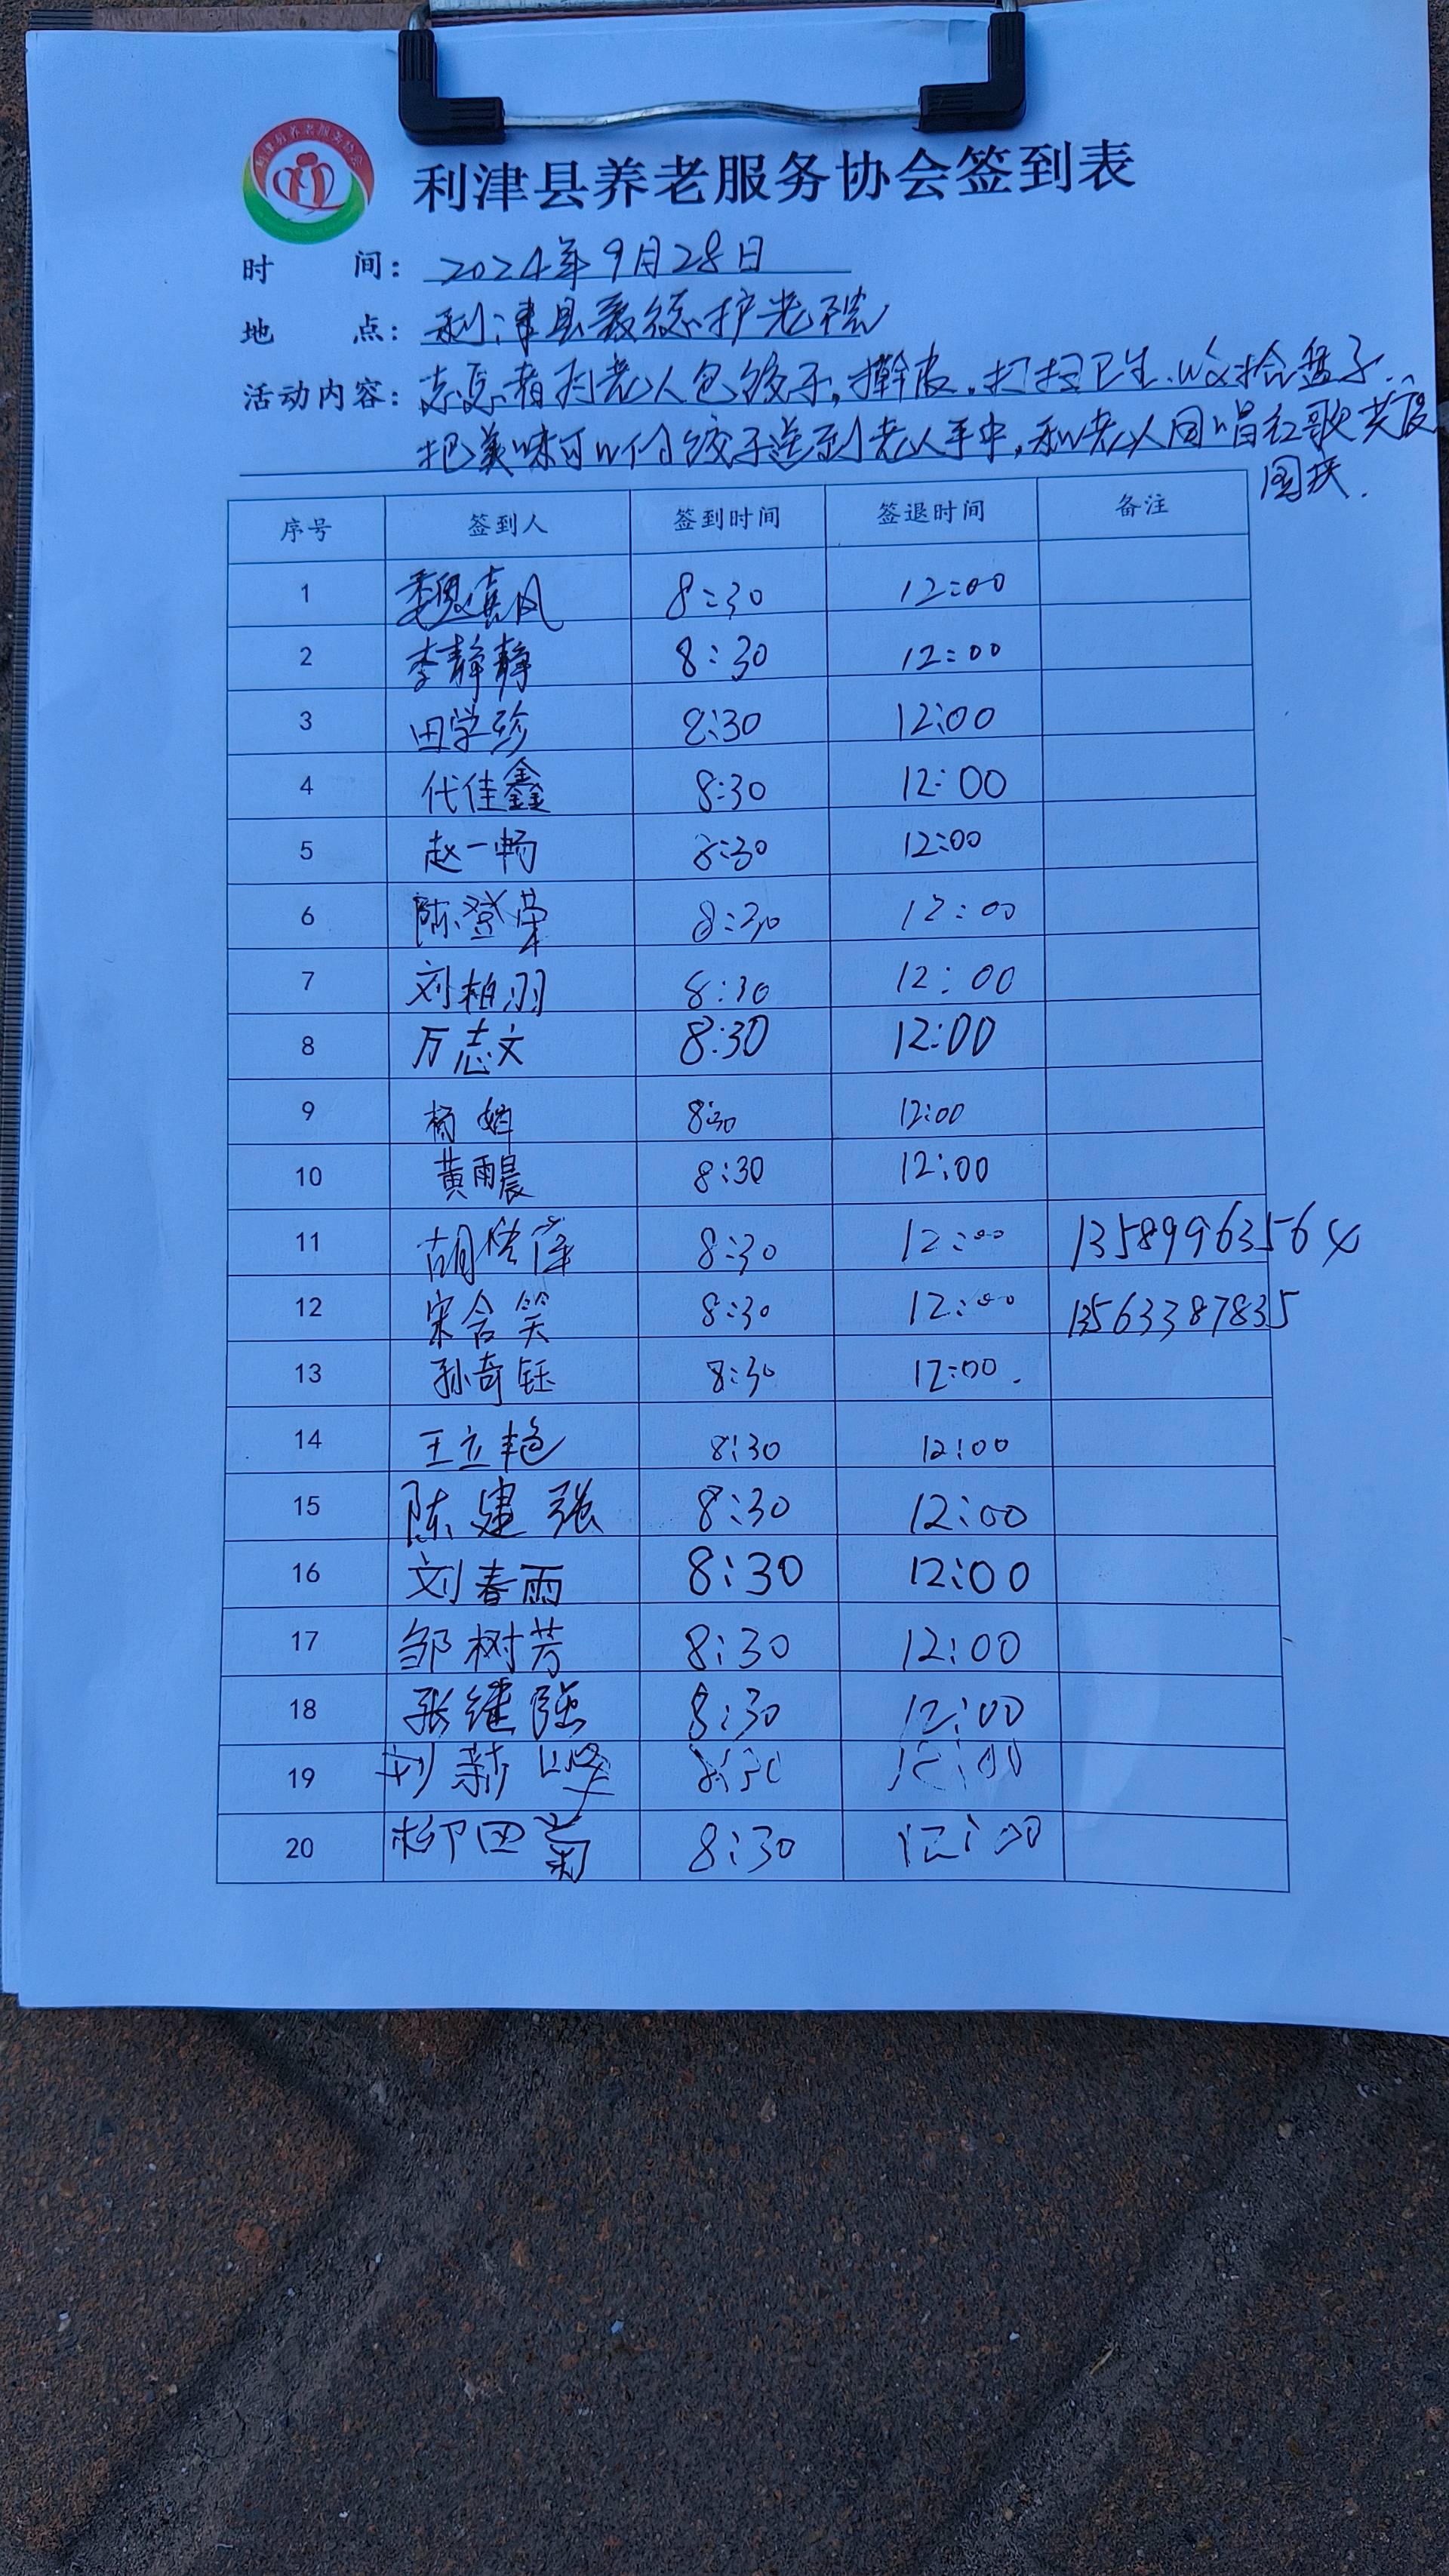 利津县养老服务协会
利津县养老服务协会签到表
时 间：2024年9月28日
地 点：利津县义德护老院
活动内容：志愿者为老人包饺子，擀皮，打扫卫生、收拾盘子，
把美味可口的饺子送到老人手中，和老人同唱红歌共度
国庆．
序号 签到人 签到时间 签退时间 备注
1 魏真风 8:30 12:00
2 李静静 8:30 12:00
3 田学珍 8:30 12:00
4 代佳鑫 8:30 12:00
5 赵一畅 8:30 12:00
6 陈登荣 8:30 12:00
7 刘柏羽 8:30 12:00
8 万志文 8:30 12:00
9 杨 8:30 12:00
10 黄雨晨 8:30 12:00
11 胡 8:30 12:00 13589963564
12 宋含笑 8:30 12:00 13563387835
13 孙奇钰 8:30 12:00.
14 王立艳 8:30 12:00
15 陈建强 8:30 12:00
16 刘春雨 8:30 12:00
17 邹树芳 8:30 12:00
18 张继强 8:30 12:00
19 刘 8:30 12:00
20 柳田菊 8:30 12:00